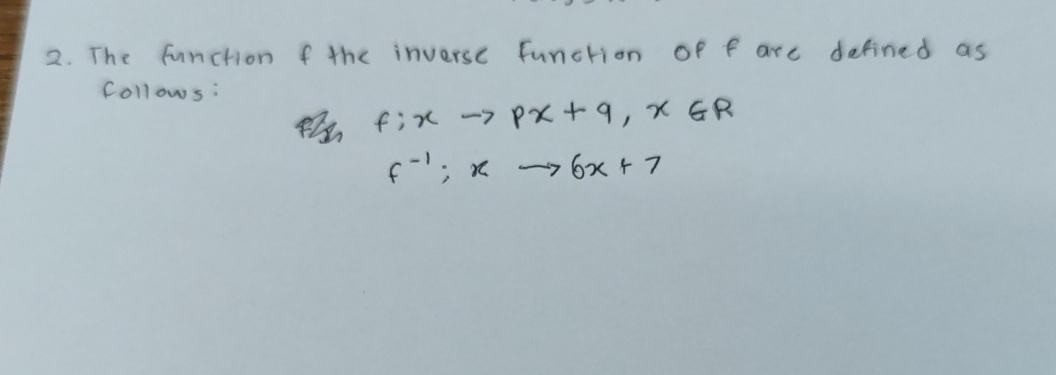 2. The function f the inverse function of f are defined as
follows:
f;x → px + q, x ∈ R
f⁻¹; x → 6x + 7